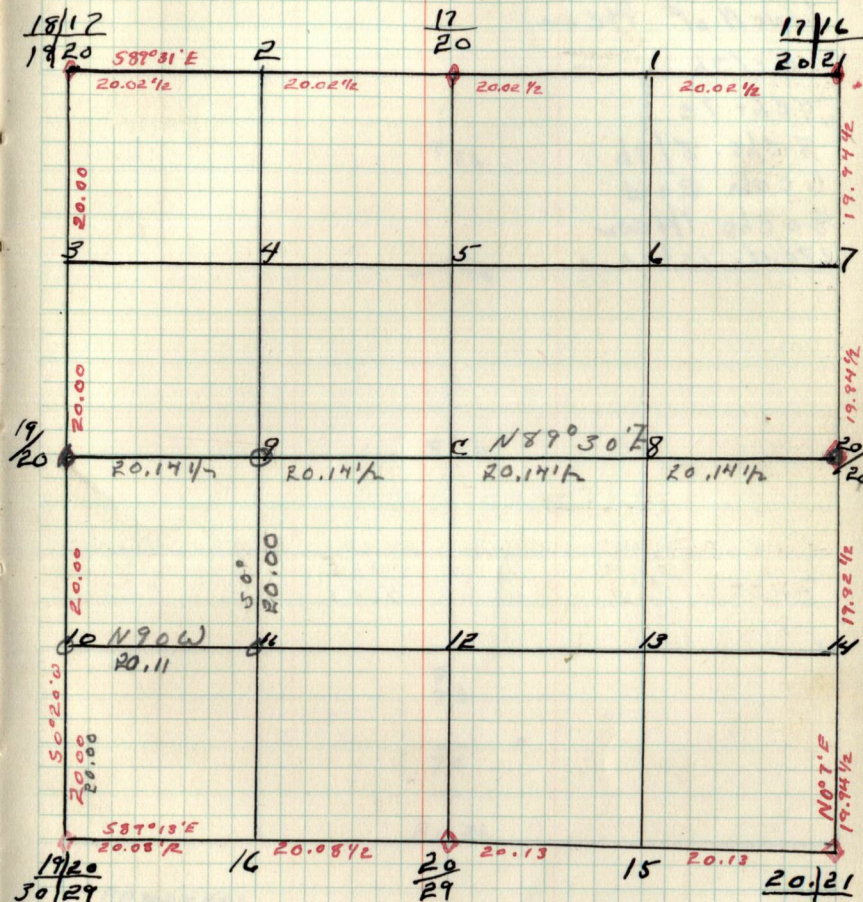 18|17 17 17|16
19|20 20 20|21
S89°31'E 2 1
20.02½ 20.02½ 20.02½ 20.02½
20.00 19.94½
3 4 5 6 7
20.00 19.94½
19/20 9 C N89°30'E 8 20/
20.14½ 20.14½ 20.14½ 20.14½
20.00 S0° 20.00 19.92½
10 N90W 11 12 13 14
20.11
S0°20'W 20.00 20.00 N0°7'E 19.94½
S89°13'E
20.08½ 20.08½ 20.13 20.13
19|20 16 20 15 20.|21
30|29 29